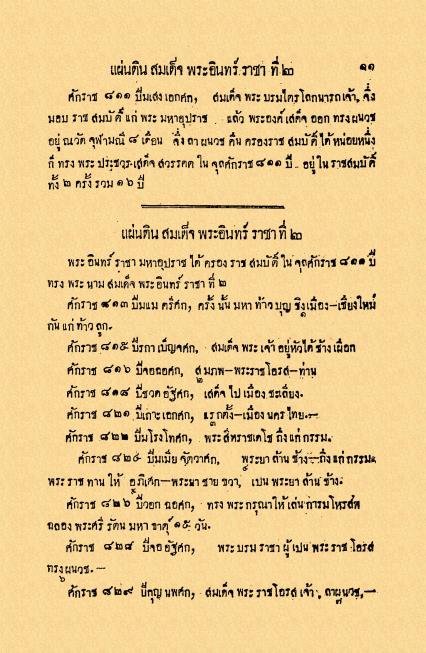 แผ่นดิน สมเด็จ พระอินทร์ ราชา ที่ ๒ ๑๑
ศักราช ๘๑๑ ปีมเสงเอกศก, สมเด็จ พระ บรมไตรโลกนารถเจ้า, จึ่ง
มอบ ราช สมบัติ์ แก่ พระ มหาอุปราช แล้ว พระองค์ เสด็จ ออก ทรง ผนวช
อยู่ ณวัด จุฬามณี ๘ เดือน จึ่ง ลา ผนวช คืน ครองราช สมบัติ์ ได้ หน่อยหนึ่ง
ก็ ทรง พระ ประชวร-เสด็จ สวรรคต ใน จุลศักราช ๘๑๑ ปี อยู่ ใน ราชสมบัติ์
ทั้ง ๒ ครั้ง รวม ๑๖ ปี
แผ่นดิน สมเด็จ พระอินทร์ ราชา ที่ ๒
พระ อินทร์ ราชา มหาอุปราช ได้ ครอง ราช สมบัติ์ ใน จุลศักราช ๘๑๑ ปี
ทรง พระ นาม สมเด็จ พระอินทร์ ราชา ที่ ๒
ศักราช ๘๑๓ ปีมแม ตรีศก, ครั้ง นั้น มหา ท้าว บุญ ชิงเมือง-เชียงใหม่
กัน แก่ ท้าว ลูก.
ศักราช ๘๑๕ ปีรกา เบ็ญจศก, สมเด็จ พระ เจ้า อยู่หัวได้ ช้าง เผือก
ศักราช ๘๑๖ ปีจอฉอศก, สมภพ-พระราชโอรส-ท่าน
ศักราช ๘๑๘ ปีชวด อัฐศก, เสด็จ ไป เมือง ชะเลียง.
ศักราช ๘๒๑ ปีเถาะเอกศก, แรกตั้ง-เมือง นคร ไทย.-
ศักราช ๘๒๒ ปีมโรงโทศก, พระ สีหราชเดโช ถึงแก่ กรรม.
ศักราช ๘๒๔ ปีมเมีย จัตวาศก, พระยา ล้าน ช้าง-ถึง แก่ กรรม
พระ ราช ทาน ให้ อภิเศก-พระยา ซาย ขวา, เปน พระยา ล้าน ช้าง.
ศักราช ๘๒๖ ปีวอก ฉอศก, ทรง พระ กรุณา ให้ เล่น การมโหรสพ
ฉลอง พระศรี รัตน มหา ธาตุ ๑๕ วัน.
ศักราช ๘๒๘ ปีจอ อัฐศก, พระ บรม ราชา ผู้ เปน พระ ราช โอรส
ทรงผนวช. -
ศักราช ๘๒๙ ปีกุญ นพศก, สมเด็จ พระ ราชโอรส เจ้า, ลาผนวช,-